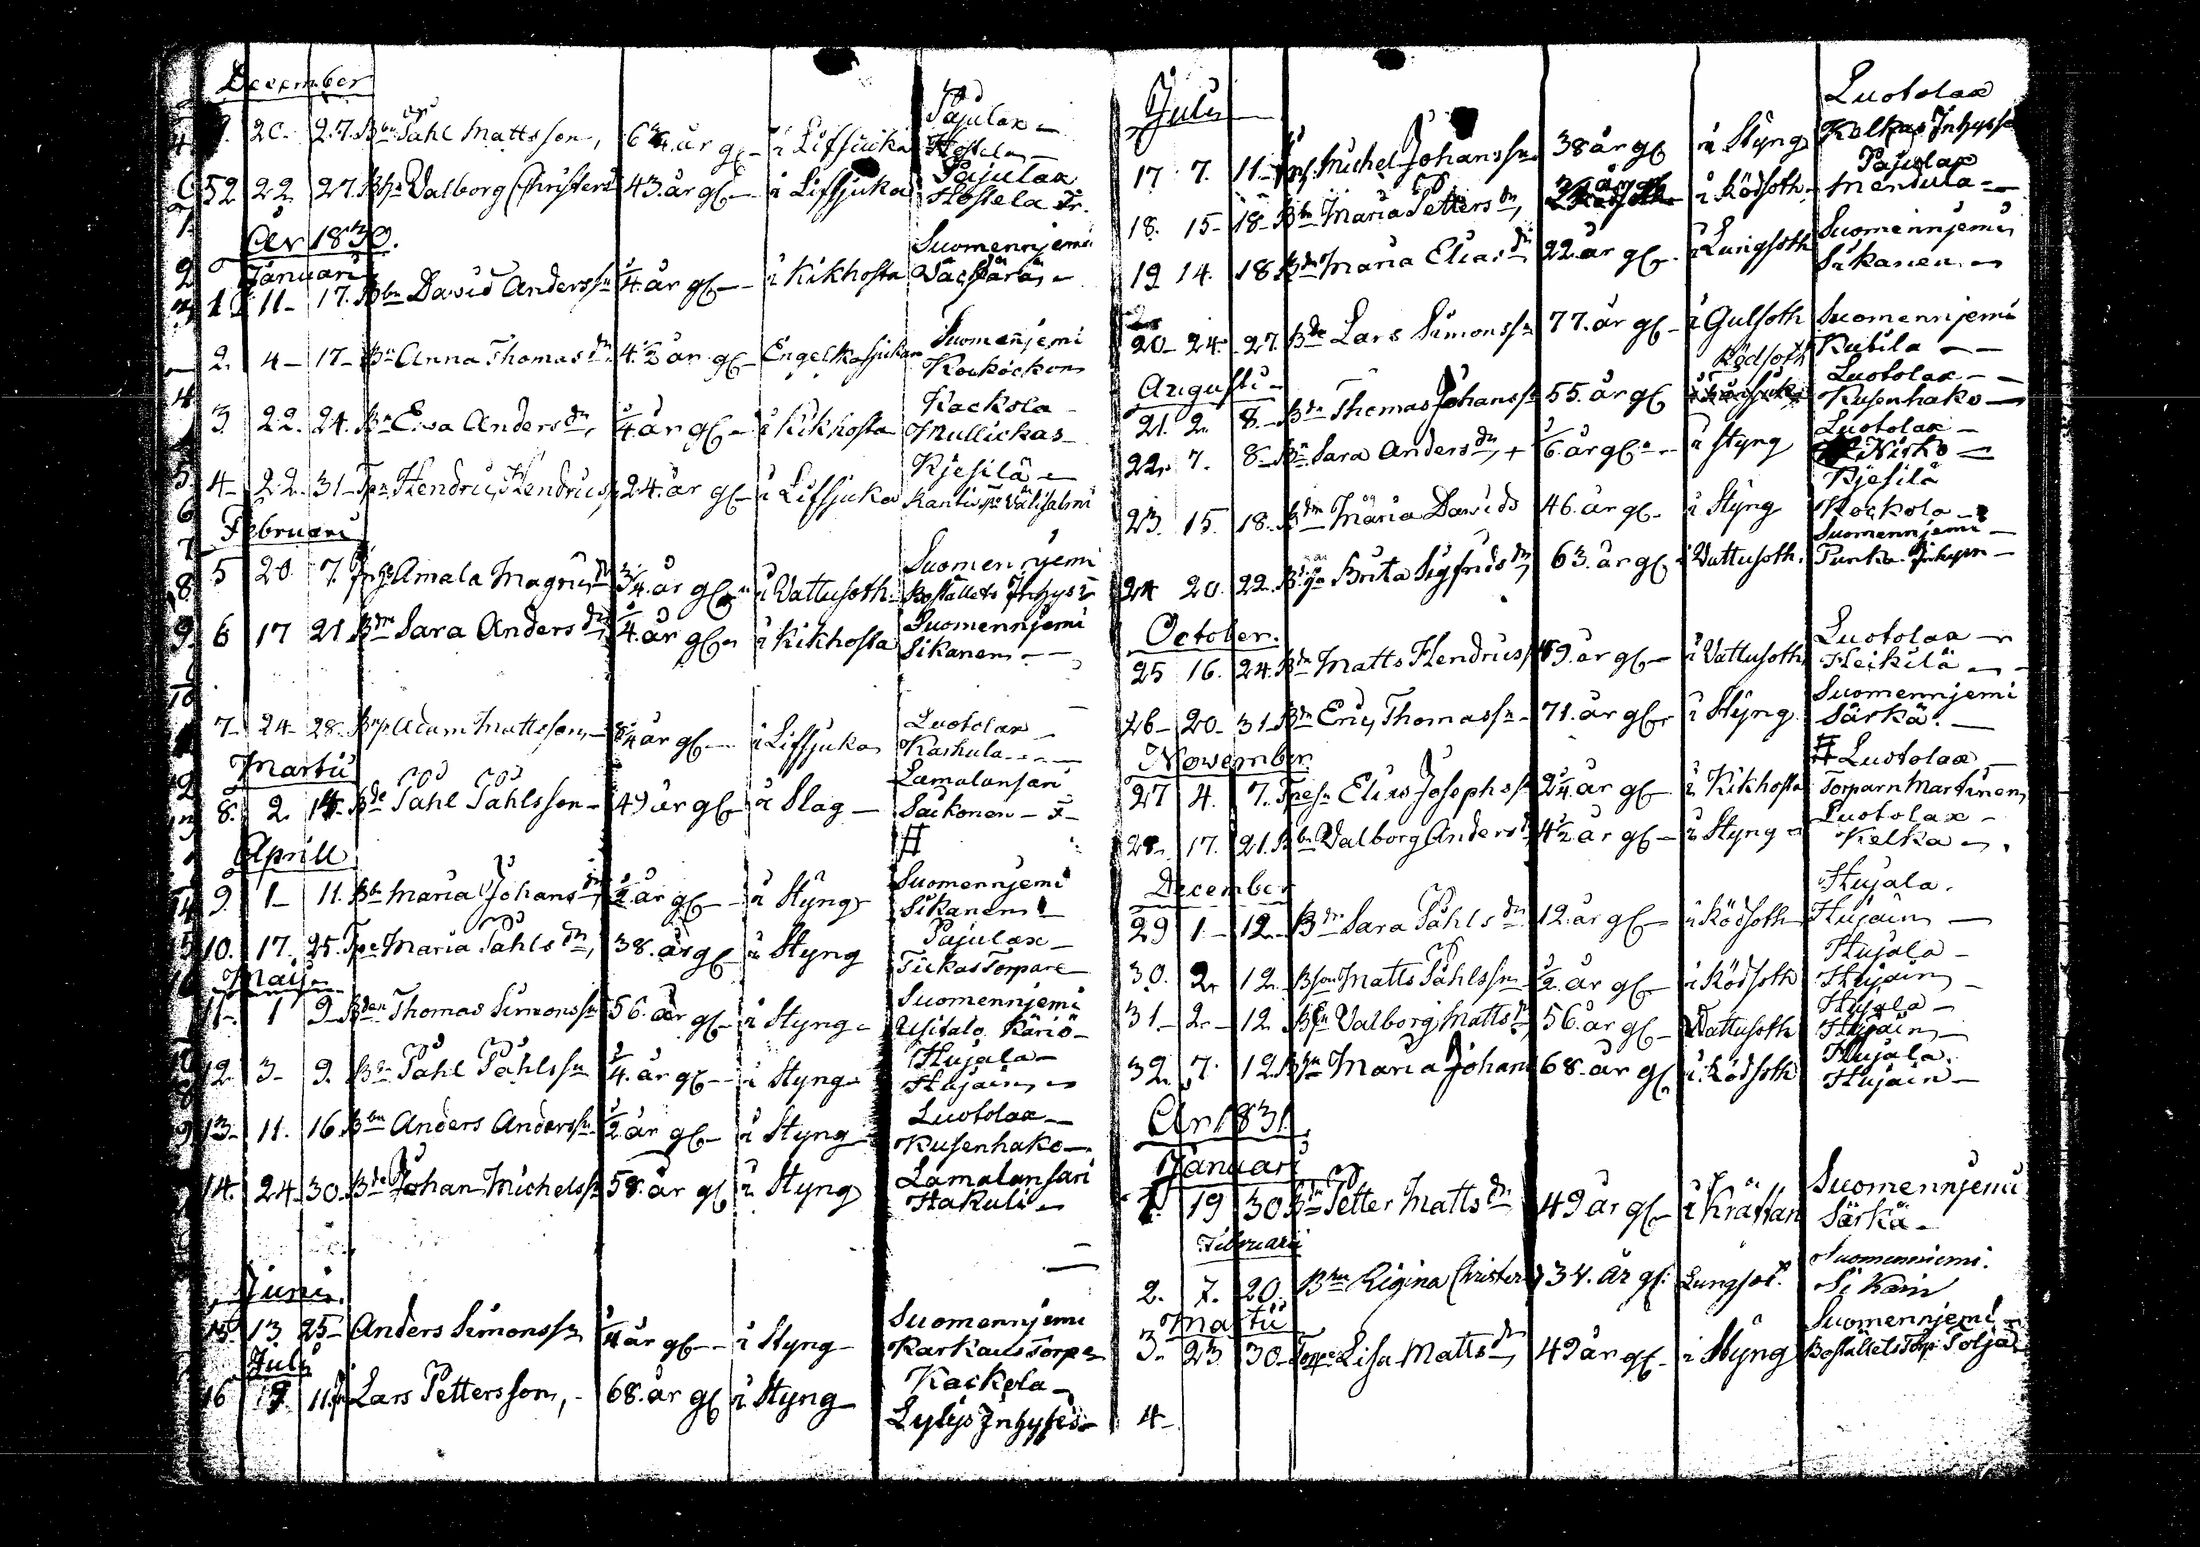 December
20. 27. Bbn Påhl Mattsson, 64. år gl i Lifsjuka Pajulax Hostela
52 22 27. Bhu Valborg Christers 43. år gl i Lifsjuka Pajulax Hostela
År 1830.
Januari
1 11 17. Bbn David Anderssn 1/4. år gl i Kikhosta Suomennjemi
2. 4 17 Bn Anna Thomas dn 4.1/2 år gl Engelkasjukan Suomenjemi
3 22. 24. Bn Eva Anders dn, 1/4 år gl i Kikhosta Kackola Mullikas
4 22. 31 Hendric Hendricss 24. år gl i Lifsjuka Kjesilä Välisalmi
Februari
5 20 7. Amala Magnus dn 3/4. år gl i Vattusoth Suomennjemi Boställets Inhys
6 17 21 Bdn Sara Anders dn 1/4. år gl i Kikhosta Suomennjemi Sikanen
7 24 28. Adam Mattsson år gl i Lifsjuka Luotolax Kaskula
Martii
8. 2. 14. Bde Påhl Påhlsson 49 år gl i Slag Lamalansari Säikonen
Aprill
9. 1 11. Bb Maria Johans dn, 1/2. år gl i Styng Suomennjemi Sikanen
10. 17. 25. Tpe Maria Påhls dn, 38. år gl i Styng Pajulax Torpare
Maij
11. 1 9 Bden Thomas Simonssn 56. år gl i Styng Suomennjemi Usitalo
12. 3 9. Bn Påhl Påhlssn 1/4. år gl i Styng Hujala Hujain
13 11. 16. Bbn Anders Anderssn 1/2 år gl i Styng Luotolax Kusenhako
14. 24. 30. Bde Johan Michelssn 58. år gl i Styng Lamalansari Hakuli
Juni.
15. 13 25 Anders Simonssn 1/4 år gl i Styng Suomennjemi Karkaus Torp
Juli
16 11. Lars Pettersson, 68. år gl i Styng Kackola Inhyses
Juli
17 7. 11 Michel Johanssn 38 år gl i Styng Luotolax Inhyses
18. 15 18 Bbn Maria Petters dn, år i Rödsoth Pajulax Mendula
19 14. 18 Bdn Maria Elias dn 22. år gl i Lungsoth Suomennjemi Sikanen
20 24. 27. Bde Lars Simonssn 77. år gl i Gulsoth Suomennjemi Kubila
Augusti
21. 2. 8. Bdn Thomas Johanssn 55. år gl Rödsoth Luotolax Kusenhako
22. 7. 8 Bn Sara Anders dn, + år gl i Styng Luotolax
23. 15. 18. Bdn Maria Davids 46. år gl i Styng Kjesilä Kockola
24 20. 22. Brita Sigfrids dn 63. år gl i Vattusoth. Suomennjemi Punka Inhysn
October.
25 16. 24. Bdn Matts Hendricss 49. år gl i Vattusoth Luotolax Heikilä
26 20. 31. Bdn Eric Thomassn 71. år gl i Styng Suomennjemi Särkä.
November
27 4. 7. Elias Josephss 2 1/4. år gl i Kikhosta Luotolax Torparn Martinen
28. 17. 21. Bbn Valborg Anders dn 4 1/2 år gl i Styng Luotolax Kelka
December
29 1 12 Bdn Sara Påhls dn 12. år gl i Rödsoth Hujala. Hujain
30. 2. 12. Bson Matts Påhlssn 1/2. år gl i Rödsoth Hujala Hujain
31 2 12 Valborg Matts dn 56. år gl Vattusoth Hujala Hujain
32. 7. 12. Maria Johans 68. år gl i Rödsoth Hujala. Hujain
År 1831
Januari
1. 19 30 Petter Matts dn 49 år gl i Kräftan Suomennjemi Särkä
Februarii
2. 7. 20. Bhu Regina Christers 34. år gl. Lungsot. Suomenniemi. Sikain
Martii
3. 23 30 Lisa Matts dn, 49 år gl i Styng Suomennjemi Boställets Torp
4